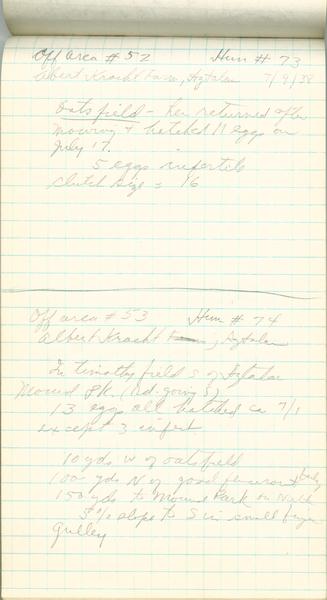 Off area # 52 Hun # 73
Albert Kracht Farm, Aztalan 7/9/38
Oats field - hen returned after
mowing & hatched 11 eggs on
July 17.
5 eggs infertile
Clutch size = 16
Off area # 53 Hun # 74
Albert Kracht Farm, Aztalan
In timothy field S of Aztalan
Mound Pk. (rd. going S)
13 eggs all hatched ca 7/1
except 3 infert
10 yds W of oatsfield
100 yds N of good fencerow
150 yds to Mound Park on North
5% slope to S in small
Gulley